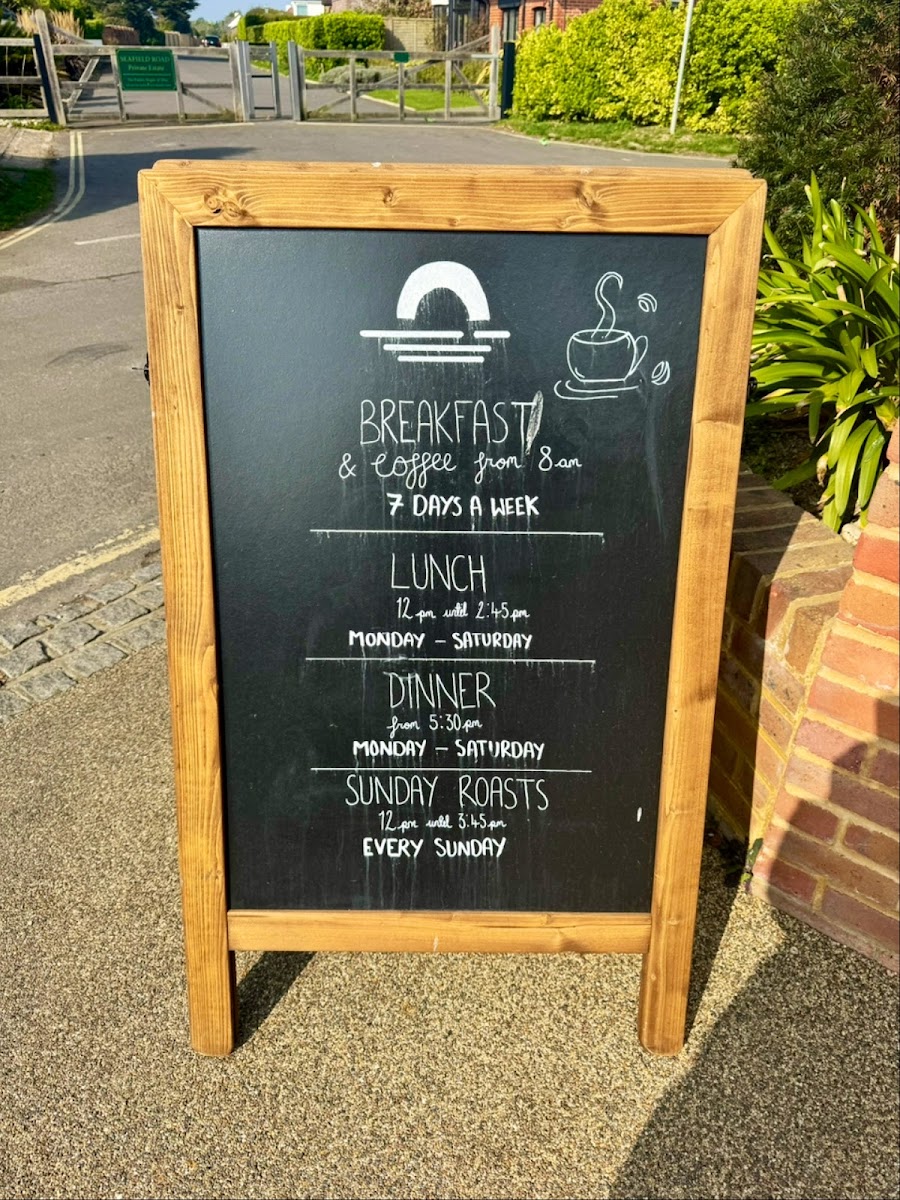 SEAFIELD ROAD
Private Estate
BREAKFAST
& coffee from 8am
7 DAYS A WEEK
LUNCH
12pm until 2:45pm
MONDAY - SATURDAY
DINNER
from 5:30pm
MONDAY - SATURDAY
SUNDAY ROASTS
12pm until 3:45pm
EVERY SUNDAY